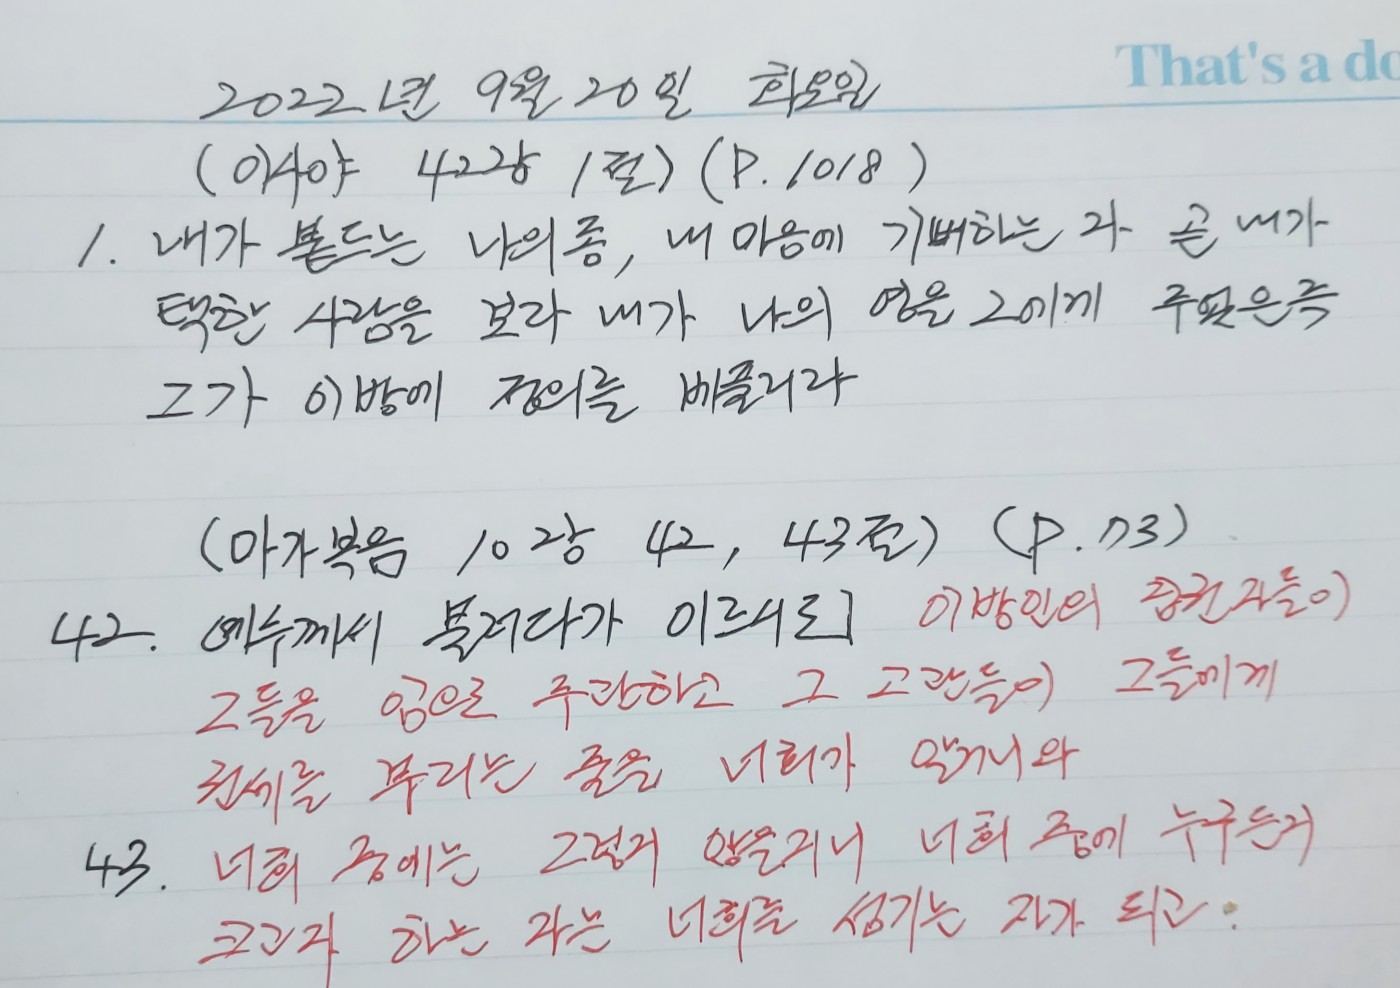 That's a do
2022년 9월 20일 화요일
(이사야 42장 1절) (P. 1018)
1. 내가 붙드는 나의 종, 내 마음에 기뻐하는 자 곧 내가
택한 사람을 보라 내가 나의 영을 그에게 주었은즉
그가 이방에 정의를 베풀리라
(마가복음 10장 42, 43절) (P. 73)
42. 예수께서 불러다가 이르시되 이방인의 집권자들이
그들을 임으로 주관하고 그 고관들이 그들에게
권세를 부리는 줄을 너희가 알거니와
43. 너희 중에는 그렇지 않을지니 너희 중에 누구든지
크고자 하는 자는 너희를 섬기는 자가 되고.